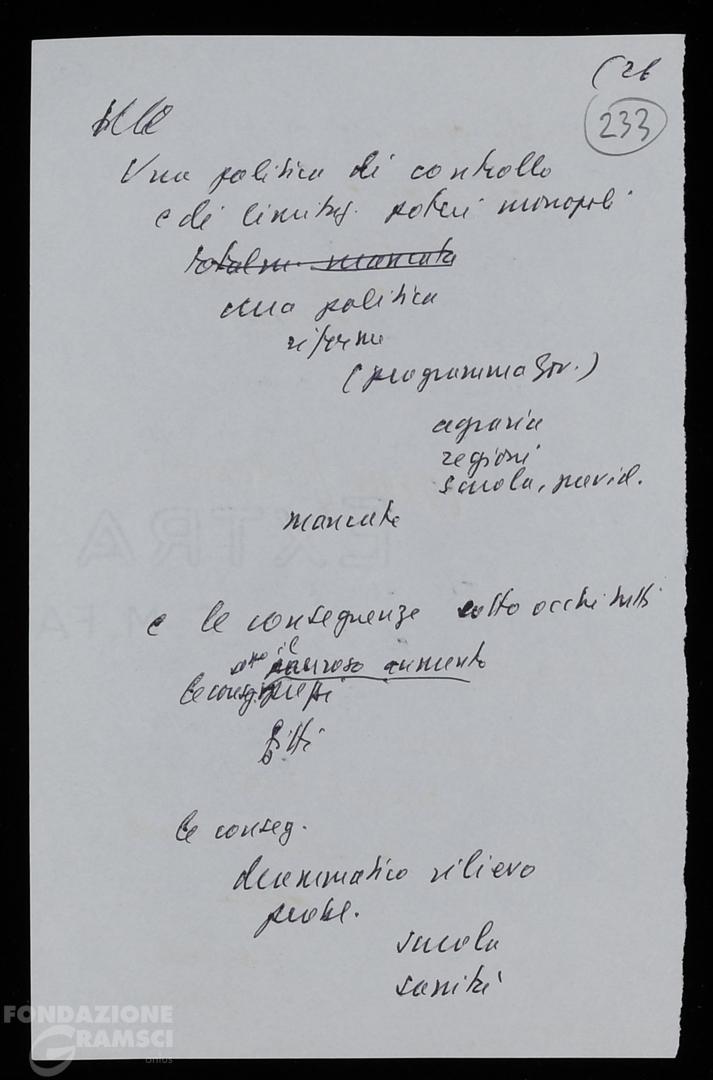 (26
233
Una politica di controllo
e di limitaz. poteri monopoli
totalm. mancata
una politica
riforme
(programma Gov.)
agraria
regioni
scuola, previd.
mancata
e le conseguenze sotto occhi tutti
il
pauroso aumento
le conseg. prezzi
fitti
le conseg.
drammatico rilievo
probl.
scuola
sanità
EXTRA
FONDAZIONE
GRAMSCI
onlus